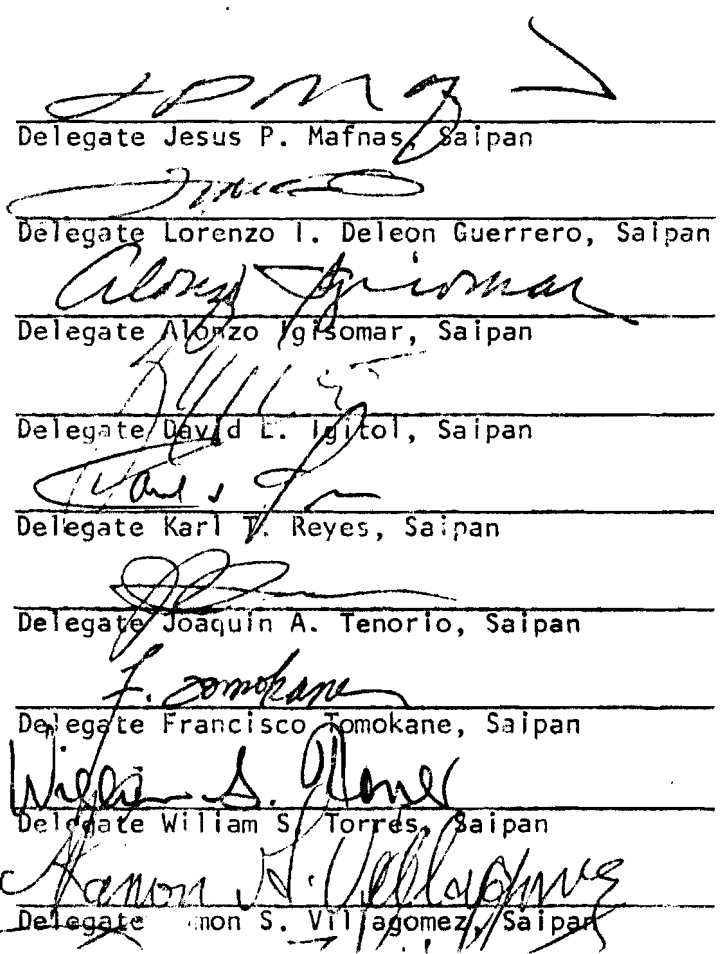 Delegate Jesus P. Mafnas, Saipan
Delegate Lorenzo I. Deleon Guerrero, Saipan
Alonzo Igisomar
Delegate Alonzo Igisomar, Saipan
Delegate David L. Igitol, Saipan
Delegate Karl T. Reyes, Saipan
Delegate Joaquin A. Tenorio, Saipan
F. Tomokane
Delegate Francisco Tomokane, Saipan
William S. Torres
Delegate William S. Torres, Saipan
Ramon S. Villagomez
Delegate mon S. Villagomez, Saipan